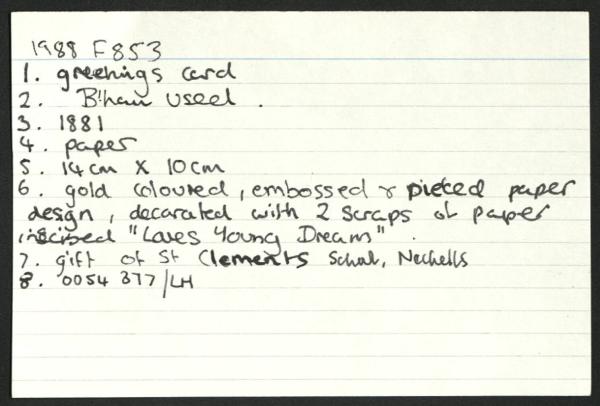 1988 F853
1. greetings card
2. B'ham used.
3. 1881
4. paper
5. 14cm X 10cm
6. gold coloured, embossed & pieced paper
design, decorated with 2 scraps of paper
inscribed "Loves Young Dream".
7. gift of St Clements School, Nechells
8. 0054 377/LH